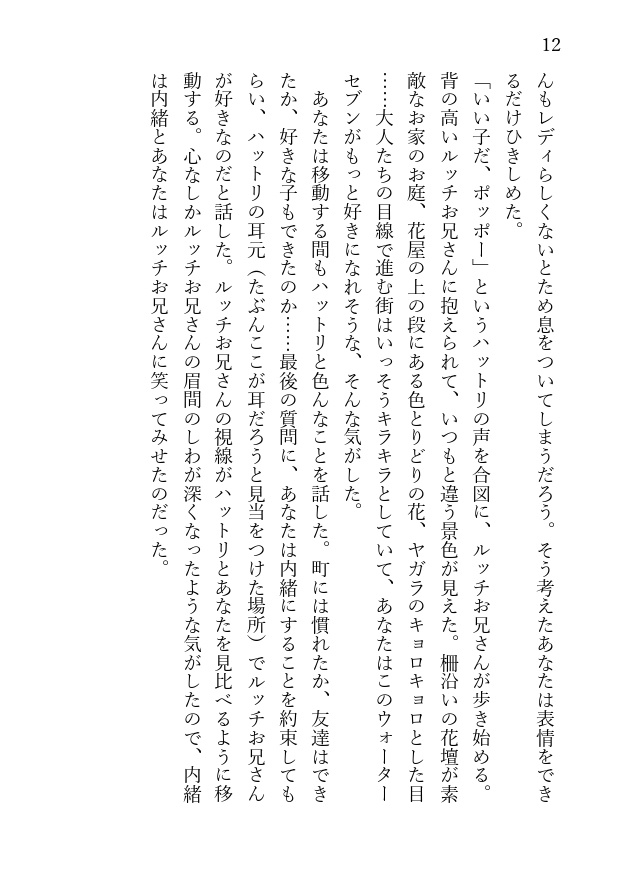 12
んもレディらしくないとため息をついてしまうだろう。そう考えたあなたは表情をでき
るだけひきしめた。
「いい子だ、ポッポー」というハットリの声を合図に、ルッチお兄さんが歩き始める。
背の高いルッチお兄さんに抱えられて、いつもと違う景色が見えた。柵沿いの花壇が素
敵なお家のお庭、花屋の上の段にある色とりどりの花、ヤガラのキョロキョロとした目
……大人たちの目線で進む街はいっそうキラキラとしていて、あなたはこのウォーター
セブンがもっと好きになれそうな、そんな気がした。
あなたは移動する間もハットリと色んなことを話した。町には慣れたか、友達はでき
たか、好きな子もできたのか……最後の質問に、あなたは内緒にすることを約束しても
らい、ハットリの耳元（たぶんここが耳だろうと見当をつけた場所）でルッチお兄さん
が好きなのだと話した。ルッチお兄さんの視線がハットリとあなたを見比べるように移
動する。心なしかルッチお兄さんの眉間のしわが深くなったような気がしたので、内緒
は内緒とあなたはルッチお兄さんに笑ってみせたのだった。